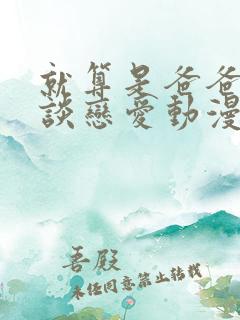 就算是爸爸
談戀愛動漫
吾殿
未經同意禁止轉載